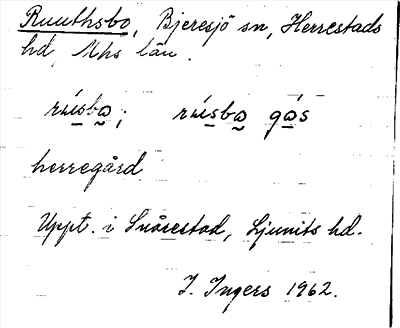 Ruuthsbo, Bjeresjö sn, Herrestads
hd, Mhs län.
rúsba; rúsba gás
herregård
Uppt. i Snårestad, Ljunits hd.
I. Ingers 1962.